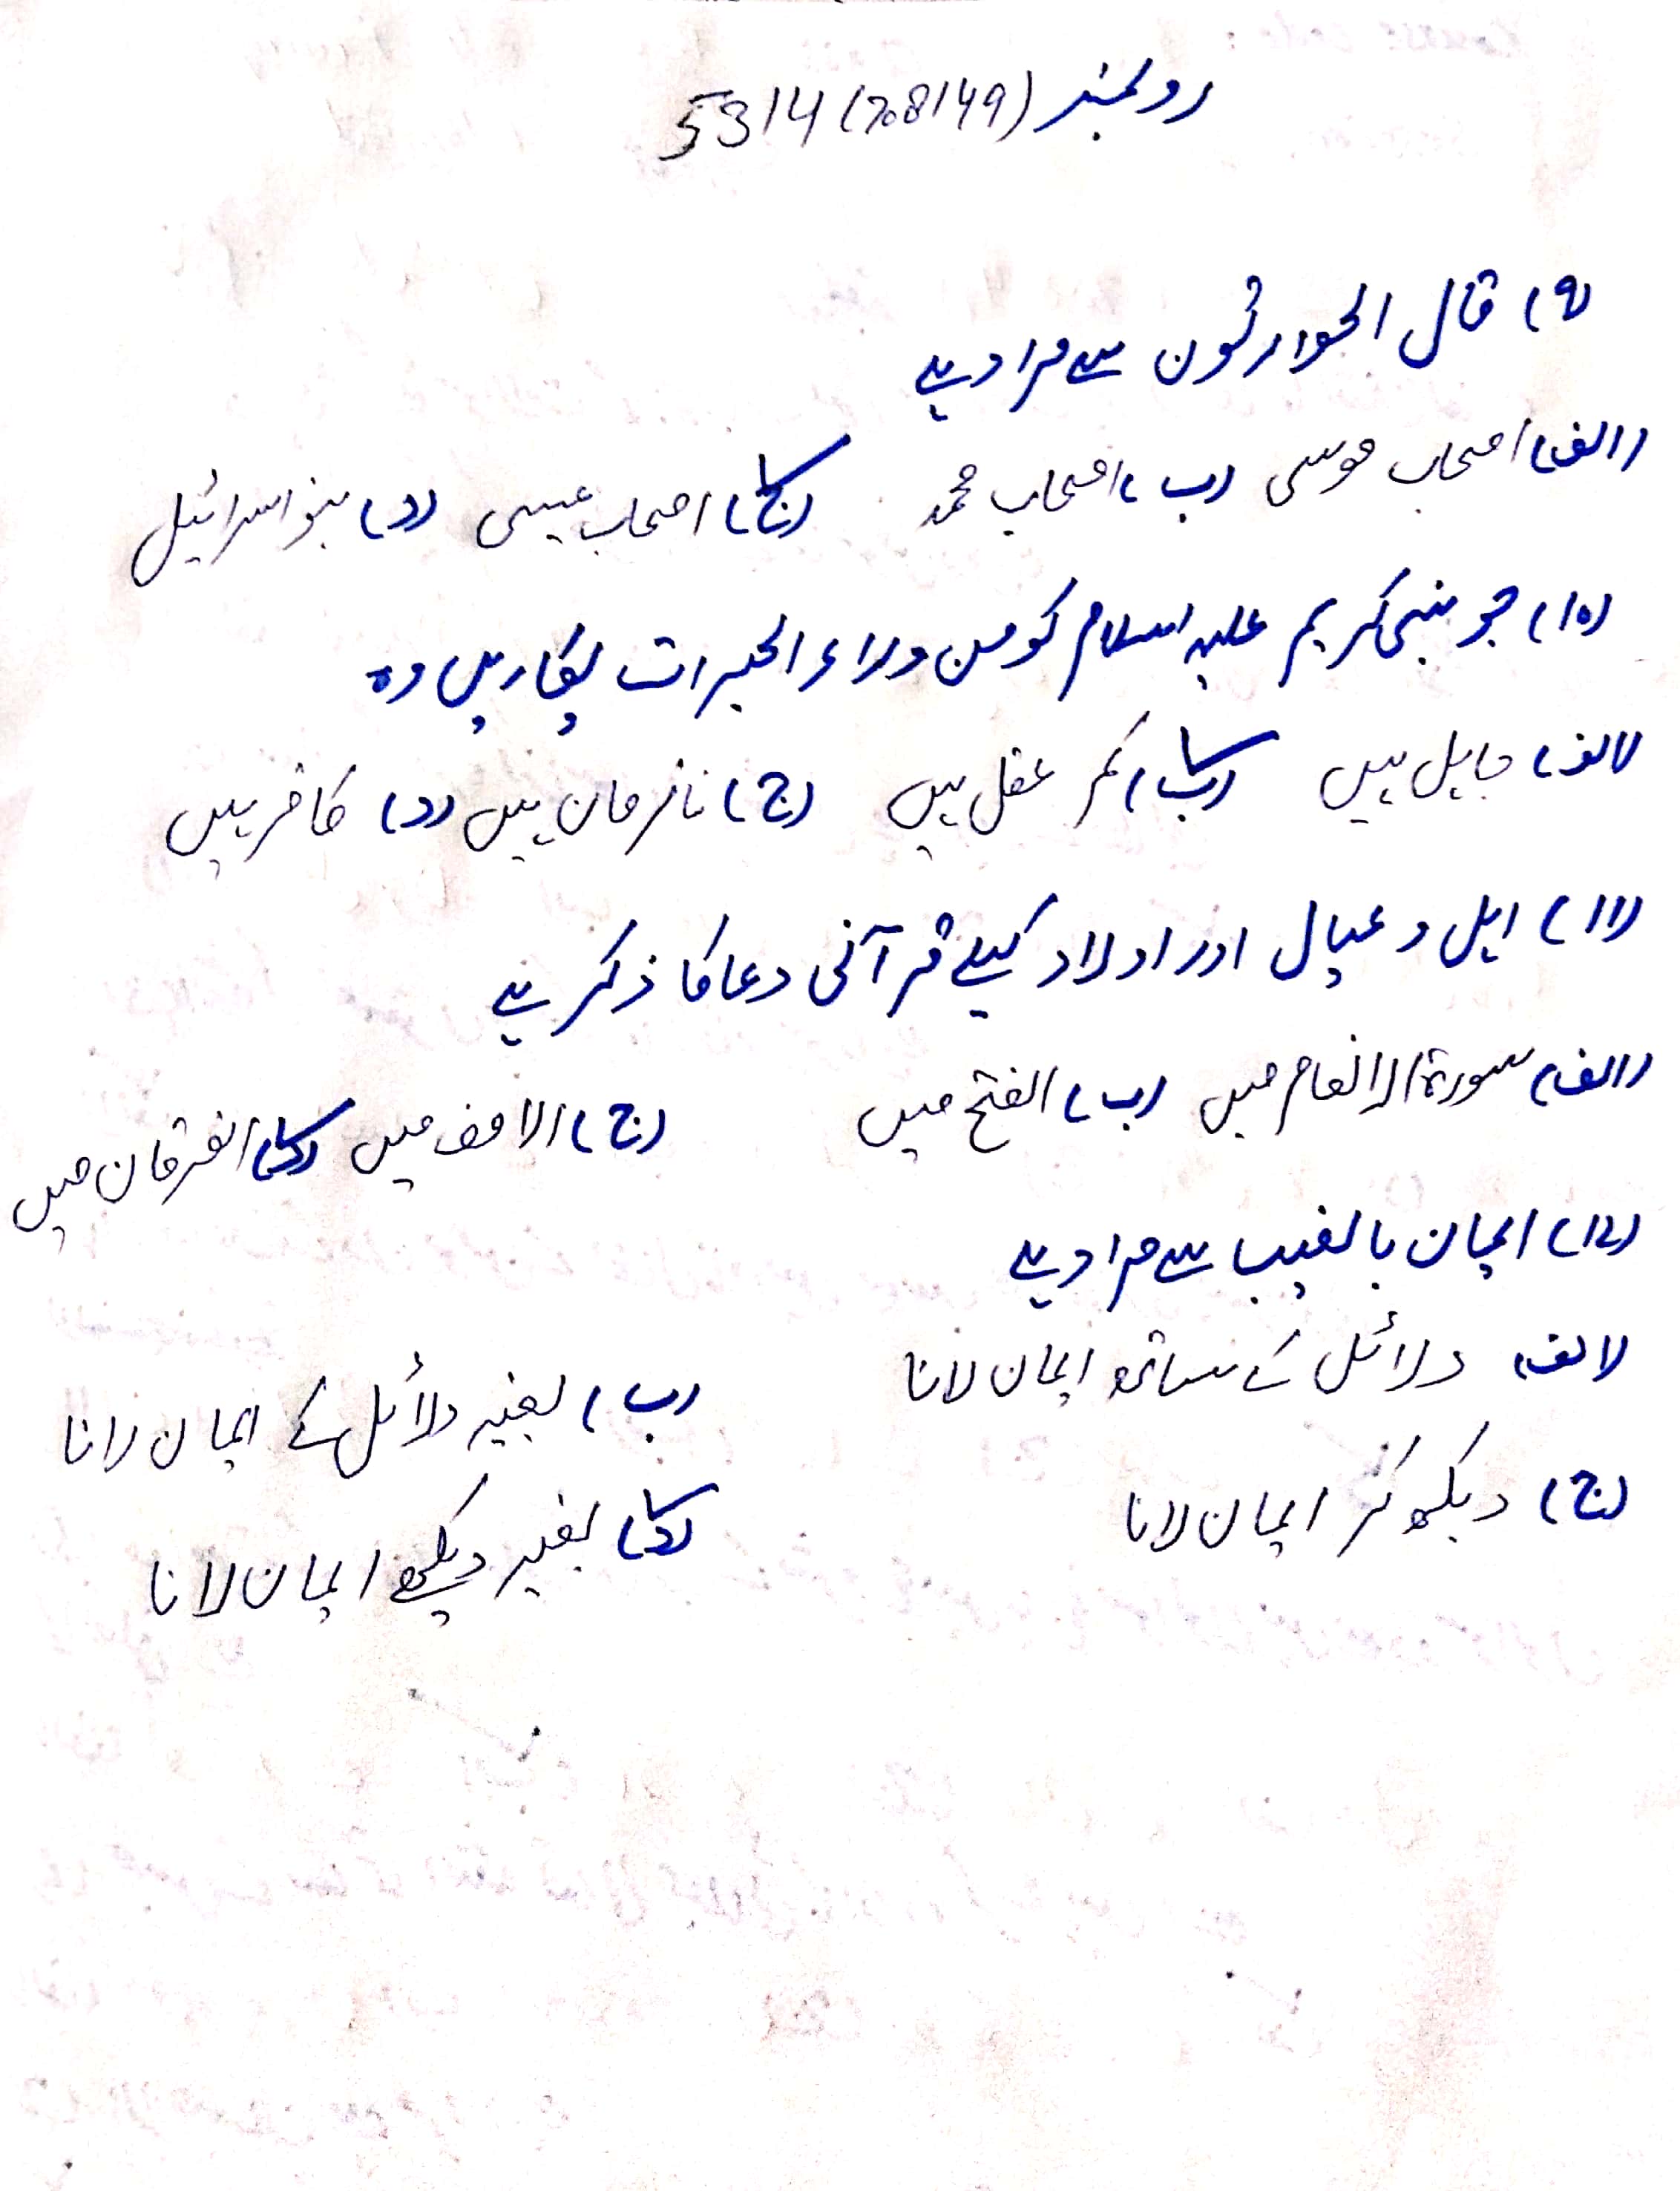 رولنمبر (708149) 5314
(9) قال الحواریون سے مراد ہے
(الف) اصحاب موسی (ب) اصحاب محمد (ج) اصحاب عیسی (د) بنو اسرائیل
(10) جو نبی کریم علیہ اسلام کو من وراء الحجرات پکاریں وہ
(الف) جاہل ہیں (ب) کم عقل ہیں (ج) نافرمان ہیں (د) کافر ہیں
(11) اہل و عیال اور اولاد کیلے قرآنی دعا کا ذکر ہے
(الف) سورۃ الانعام میں (ب) الفتح میں (ج) میں (د) الفرقان میں
(12) ایمان بالغیب سے مراد ہے
(الف) دلائل کے ساتھ ایمان لانا (ب) بغیر دلائل کے ایمان لانا
(ج) دیکھ کر ایمان لانا (د) بغیر دیکھے ایمان لانا